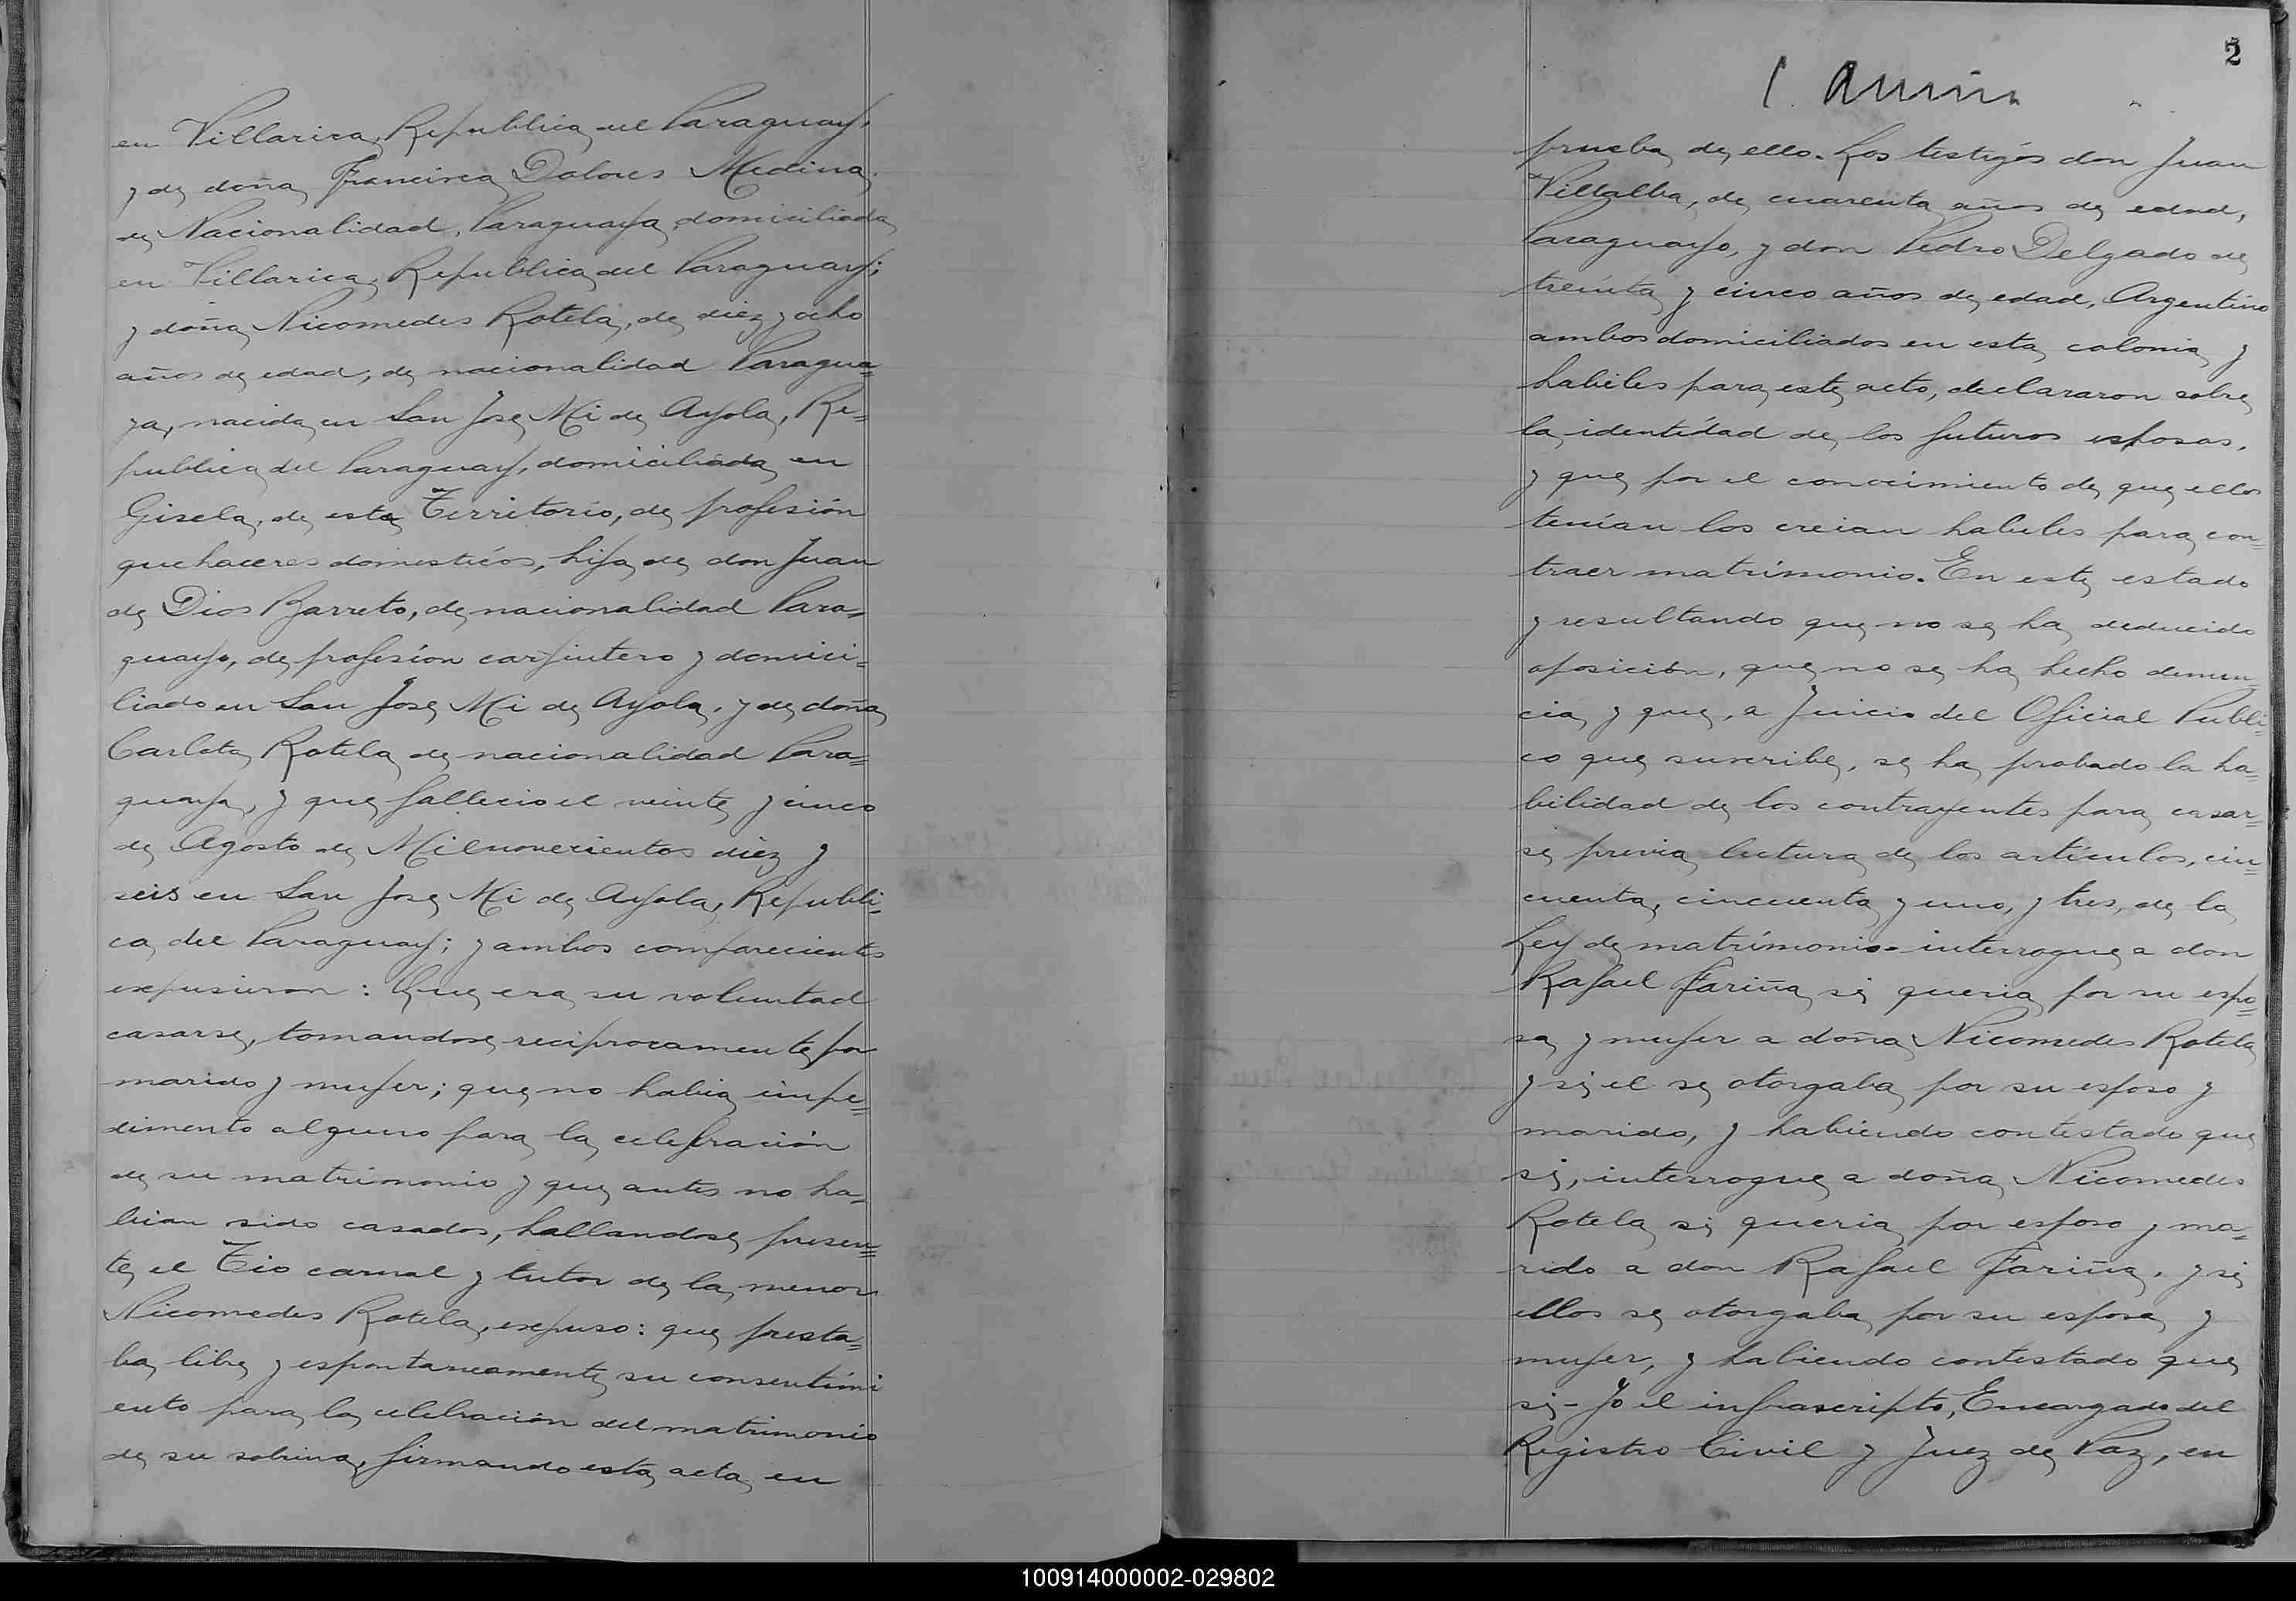 en Villarica, Republica del Paraguay,
y de doña Francisca Dolores Medina,
de Nacionalidad, Paraguaya, domiciliada
en Villarica, Republica del Paraguay;
y doña Nicomedes Rotela, de diez y ocho
años de edad, de nacionalidad Paragua=
ya, nacida en San Jose Mi de Ayola, Re=
publica del Paraguay, domiciliada en
Gisela, de este Territorio, de profesión
quehaceres domesticos, hija de don Juan
de Dios Barreto, de nacionalidad Para=
guayo, de profesion carpintero y domici=
liado en San Jose Mi de Ayola, y de doña
Carlota Rotela de nacionalidad Para=
guaya, y que fallecio el veinte y cinco
de Agosto de Milnovecientos diez y
seis en San Jose Mi de Ayola, Republi=
ca del Paraguay; y ambos comparecientes
expusieron: Que era su voluntad
casarse, tomandose reciprocamente por
marido y mujer; que no habia impe=
dimento alguno para la celebración
de su matrimonio y que antes no ha=
bian sido casados, hallandose presen=
te el Tio carnal y tutor de la menor
Nicomedes Rotela, expuso: que presta=
ba libre y espontaneamente su consentimi
ento para la celebración del matrimonio
de su sobrina, firmando esta acta en
2
prueba de ello. Los testigos don Juan
Villalba, de cuarenta años de edad,
Paraguayo, y don Pedro Delgado de
treinta y cinco años de edad, Argentino
ambos domiciliados en esta colonia y
habiles para este acto, declararon sobre
la identidad de los futuros esposos,
y que por el conocimiento de que ellos
tenían los creian habiles para con=
traer matrimonio. En este estado
y resultando que no se ha deducido
oposición, que no se ha hecho denun=
cia y que, a juicio del Oficial Publi=
co que suscribe, se ha probado la ha=
bilidad de los contrayentes para casar=
se previa lectura de los artículos, cin=
cuenta, cincuenta y uno, y tres, de la
Ley de matrimonio - interrogue a don
Rafael Fariña si queria por su espo=
sa y mujer a doña Nicomedes Rotela
y si el se otorgaba por su esposo y
marido, y habiendo contestado que
si, interrogue a doña Nicomedes
Rotela si queria por esposo y ma=
rido a don Rafael Fariña, y si
ellos se otorgaba por su esposa y
mujer, y habiendo contestado que
si - Yo el infrascripto, Encargado del
Registro Civil y Juez de Paz, en
100914000002-029802